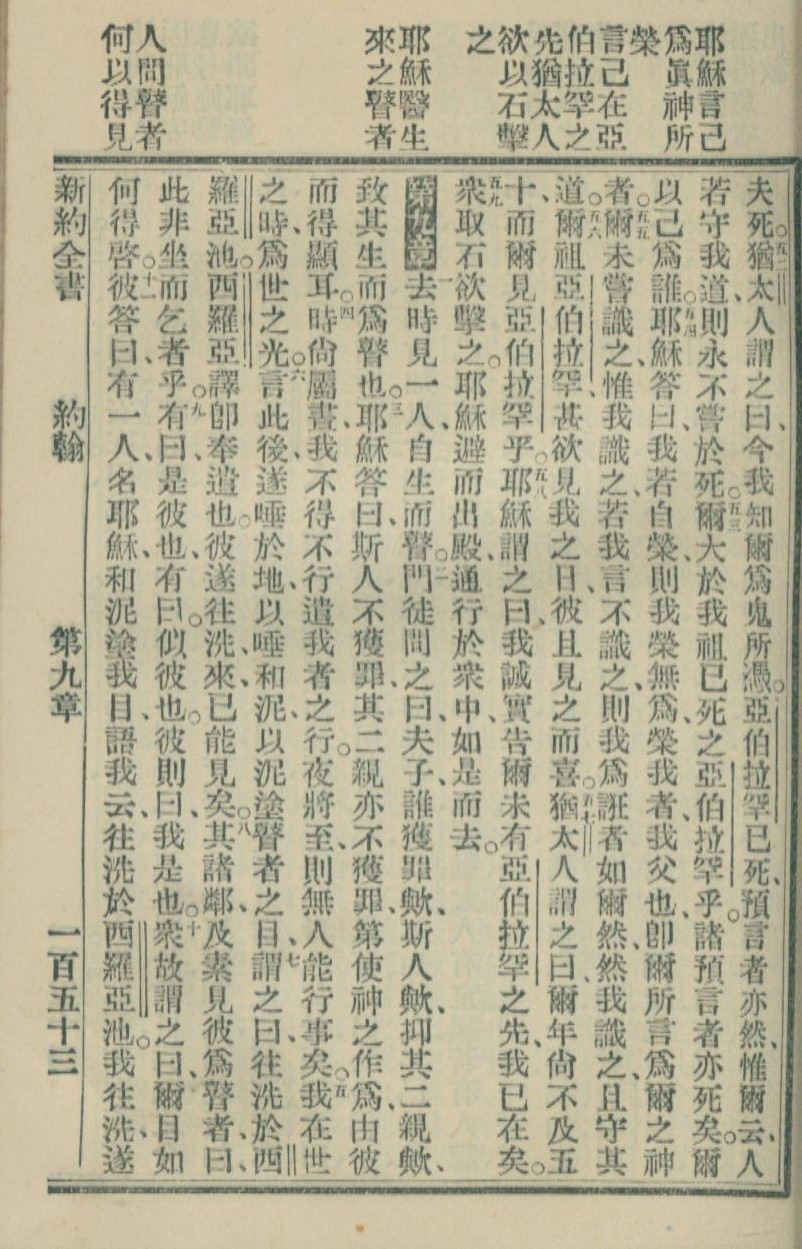 耶穌言己
爲眞神所
榮
言己在亞
伯拉罕之
先猶太人
欲以石擊
之
耶穌醫生
來之瞽者
人問瞽者
何以得見
夫死。五二猶太人謂之曰、今我知爾爲鬼所憑。亞伯拉罕已死、預言者亦然、惟爾云、人
若守我道、則永不嘗於死。五三爾大於我祖已死之亞伯拉罕乎。諸預言者亦死矣。爾
以己爲誰。五四耶穌答曰、我若自榮、則我榮無爲、榮我者、我父也、卽爾所言爲爾之神
者。五五爾未嘗識之、惟我識之、若我言不識之、則我爲誑者如爾然、然我識之、且守其
道。五六爾祖亞伯拉罕、甚欲見我之日、彼且見之而喜。五七猶太人謂之曰、爾年尙不及五
十、而爾見亞伯拉罕乎。五八耶穌謂之曰、我誠實告爾、未有亞伯拉罕之先、我已在矣。
五九衆取石欲擊之。耶穌避而出殿、通行於衆中、如是而去。
第九章 一去時見一人、自生而瞽。二門徒問之曰、夫子、誰獲罪歟、斯人歟、抑其二親歟、
致其生而爲瞽也。三耶穌答曰、斯人不獲罪、其二親亦不獲罪、第使神之作爲、由彼
而得顯耳。四時尙屬晝、我不得不行遣我者之行。夜將至、則無人能行事矣。五我在世
之時、爲世之光。六言此後、遂唾於地、以唾和泥、以泥塗瞽者之目、七謂之曰、往洗於西
羅亞池。西羅亞譯卽奉遣也。彼遂往洗、來、已能見矣。八其諸鄰、及素見彼爲瞽者、曰、
此非坐而乞者乎。九有曰、是彼也、有曰。似彼也。彼則曰、我是也。十衆故謂之曰、爾目如
何得啓。十一彼答曰、有一人名耶穌、和泥塗我目、語我云、往洗於西羅亞池。我往洗、遂
新約全書 約翰 第九章 一百五十三